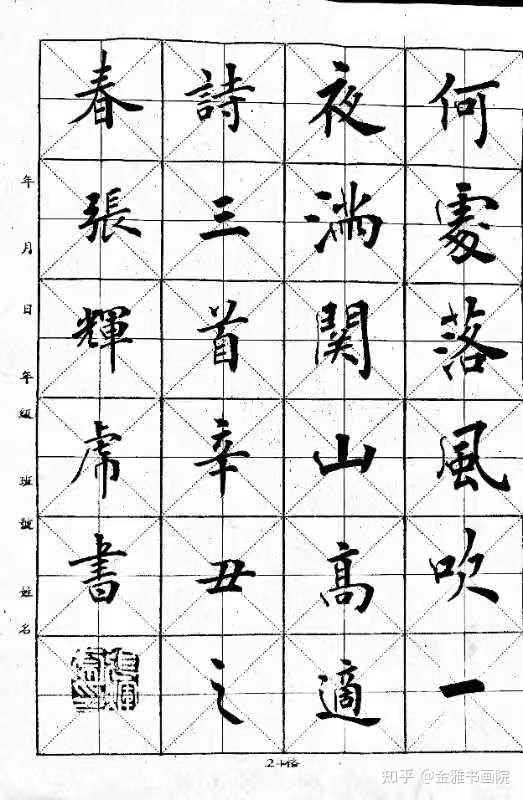 何處落風吹一
夜滿關山高適
詩三首辛丑之
春張輝虎書
年 月 日 年級 班號 姓名
24格
知乎 @金雅书画院